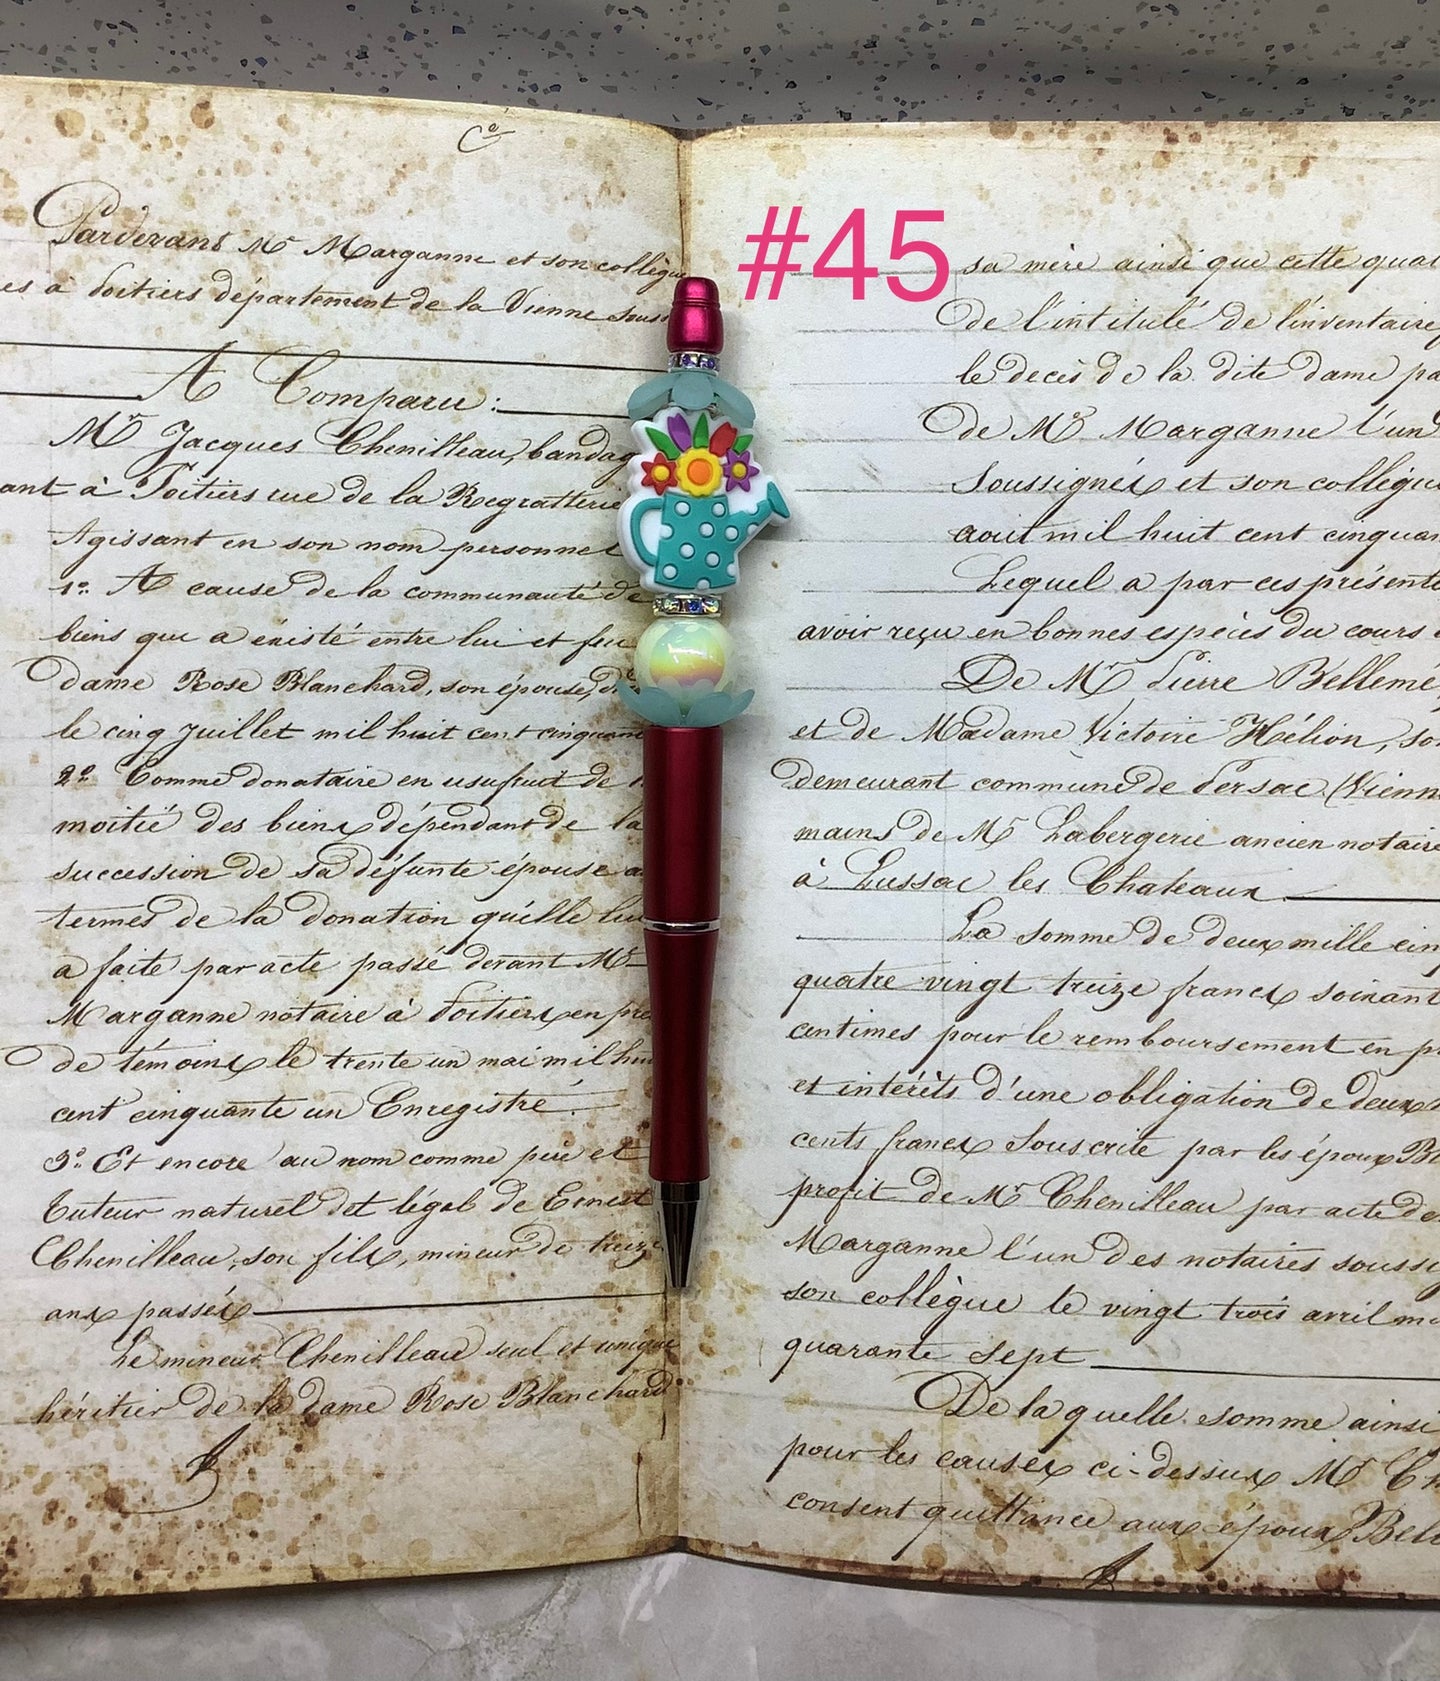 Co
Pardevant Mr Marganne et son collègue
es à Poitiers département de la Vienne sous
A Comparu :
Mr Jacques Chenilleau, bandag
ant à Poitiers rue de la Regratterie
Agissant en son nom personnel
1o. A cause de la communauté de
biens qui a éxisté entre lui et feu
dame Rose Blanchard, son épouse,
le cinq Juillet mil huit cent cinquan
2o Comme donataire en usufruit de
moitié des biens dépendant de la
succession de sa défunte épouse a
termes de la donation qu'elle lui
a faite par acte passé devant Mr
Marganne notaire à Poitiers en pré
de témoins le trente un mai mil hu
cent cinquante un Enregistré.
3o. Et encore au nom comme père et
Tuteur naturel et légal de Ernest
Chenilleau, son fils, mineur de treize
ans passés
Le mineur Chenilleau seul et unique
héritier de la dame Rose Blanchard
#45
sa mère ainsi que cette qual
de l'intitulé de l'inventaire
le decès de la dite dame pa
de Mr Marganne l'un
Soussignés et son collègue
aout mil huit cent cinquan
Lequel a par ces présente
avoir reçu en bonnes espèces du cours
De Mr Pierre Bellemé
et de Madame Victoire Hélion, so
demeurant commune de Persac (Vienn
mains de Mr Labergerie ancien notaire
à Lussac les Chateaux
La somme de deux mille cin
quatre vingt treize francs soixant
centimes pour le remboursement en p
et intérêts d'une obligation de deux
cents francs Souscrite par les époux B
profit de Mr Chenilleau par acte de
Marganne l'un des notaires soussig
son collègue le vingt trois avril m
quarante sept
De la quelle somme ainsi
pour les causes ci-dessus Mr Ch
consent quittance aux époux Bell